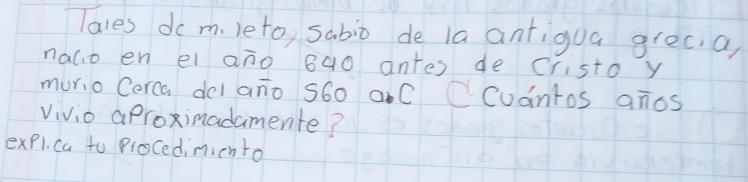 Tales de mileto, sabio de la antigua grecia,
nacio en el año 640 antes de Cristo y
murio Cerca del año 560 a.C ¿Cuántos años
Vivio aproximadamente?
explica tu procedimiento